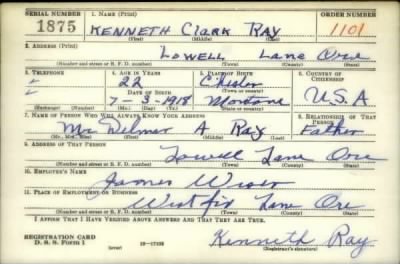 SERIAL NUMBER 1. NAME (Print) ORDER NUMBER
1875 KENNETH Clark RAY 1101
(First) (Middle) (Last)
2. ADDRESS (Print)
LOWELL Lane Ore
(Number and street or R. F. D. number) (Town) (County) (State)
3. TELEPHONE 4. AGE IN YEARS 5. PLACE OF BIRTH 6. COUNTRY OF CITIZENSHIP
22 Chester
DATE OF BIRTH
7-3-1918 Montana U.S.A
(Exchange) (Number) (Mo.) (Day) (Yr.) (State or country)
7. NAME OF PERSON WHO WILL ALWAYS KNOW YOUR ADDRESS 8. RELATIONSHIP OF THAT PERSON
Mr. Delmar A Ray Father
(Mr., Mrs., Miss) (First) (Middle) (Last)
9. ADDRESS OF THAT PERSON
Lowell Lane Ore
(Number and street or R. F. D. number) (Town) (County) (State)
10. EMPLOYER'S NAME
James
11. PLACE OF EMPLOYMENT OR BUSINESS
Westfir Lane Ore
(Number and street or R. F. D. number) (Town) (County) (State)
I AFFIRM THAT I HAVE VERIFIED ABOVE ANSWERS AND THAT THEY ARE TRUE.
REGISTRATION CARD
D. S. S. Form 1 (over) Kenneth Ray